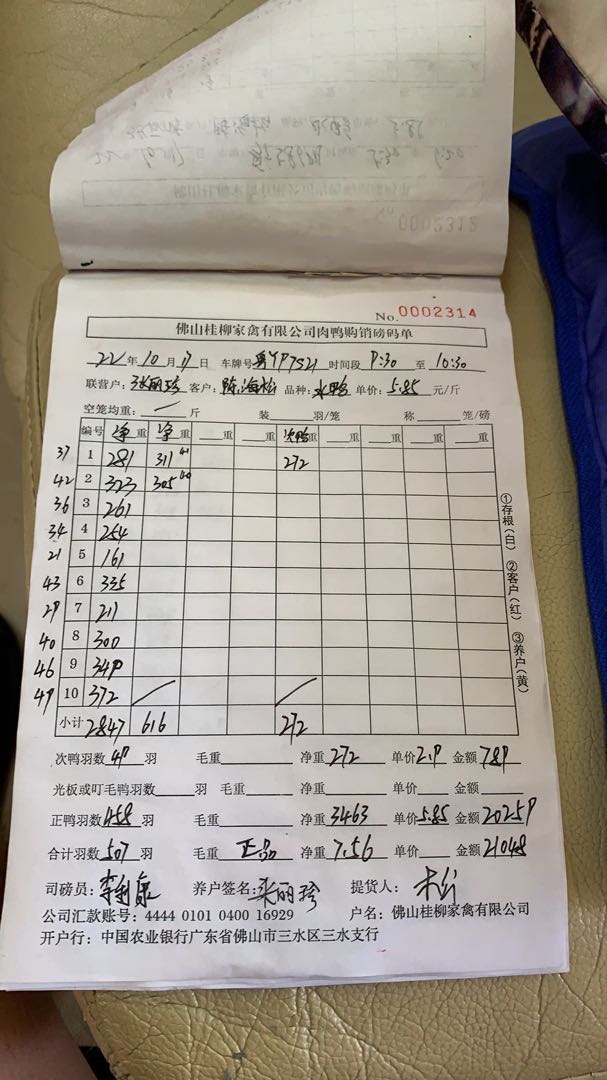 0002312
No. 0002314
佛山桂柳家禽有限公司肉鸭购销磅码单
22年10月9日 车牌号粤YP7521 时间段9:30 至 10:30
联营户:张丽珍 客户:陈海松 品种:水鸭 单价:5.85元/斤
空笼均重: / 斤 装 羽/笼 称 笼/磅
编号 净重 净重 重 重 次鸭重 重 重 重
37 1 281 311 41 272
42 2 323 305 40
36 3 261
34 4 254
21 5 161
43 6 335
29 7 211
40 8 300
46 9 349
49 10 372 / /
小计 2847 616 272
①存根(白) ②客户(红) ③养户(黄)
次鸭羽数49羽 毛重 净重272 单价2.9 金额789
光板或叮毛鸭羽数 羽 毛重 净重 单价 金额
正鸭羽数458羽 毛重 净重3463 单价5.85 金额20259
合计羽数507羽 毛重 正品 净重7.56 单价 金额21048
司磅员: 养户签名:张丽珍 提货人:
公司汇款账号:4444 0101 0400 16929 户名:佛山桂柳家禽有限公司
开户行:中国农业银行广东省佛山市三水区三水支行